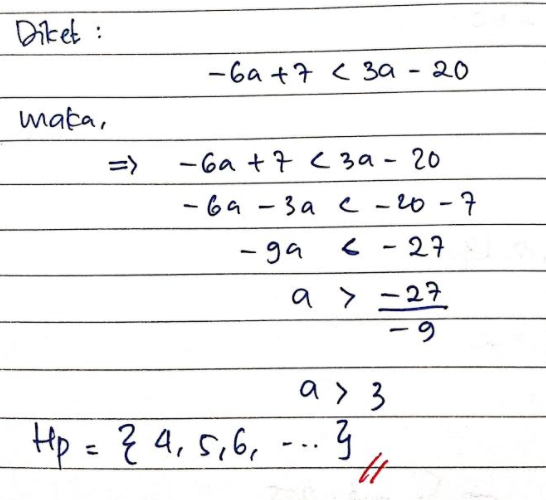 Diket :
-6a + 7 < 3a - 20
maka,
=> -6a + 7 < 3a - 20
-6a - 3a < -20 - 7
-9a < -27
a > -27/-9
a > 3
Hp = { 4, 5, 6, ... }